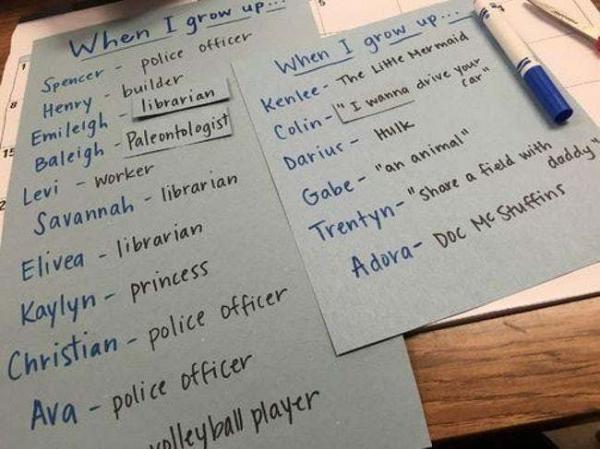 When I grow up...
Spencer - police officer
Henry - builder
Emileigh - librarian
Baleigh - Paleontologist
Levi - worker
Savannah - librarian
Elivea - librarian
Kaylyn - princess
Christian - police officer
Ava - police officer
volleyball player
When I grow up...
Kenlee - The Little Mermaid
Colin - "I wanna drive your
car"
Darius - Hulk
Gabe - "an animal"
Trentyn - "Share a field with
daddy"
Adora - Doc McStuffins